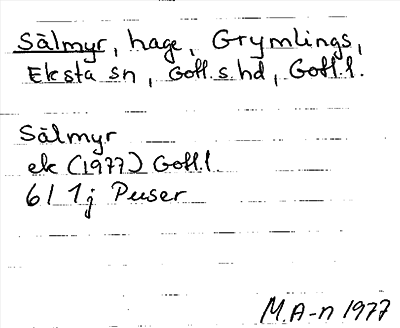 Sälmyr, hage, Grymlings,
Eksta sn, Gotl. s. hd, Gotl. l.
Sälmyr
ek (1977) Gotl. l
6 I 1j Puser
M.A-n 1977